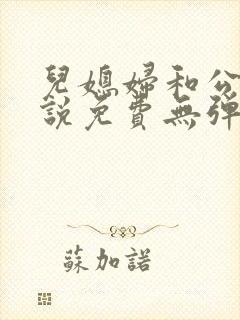 兒媳婦和公
說免費無彈
蘇加諾